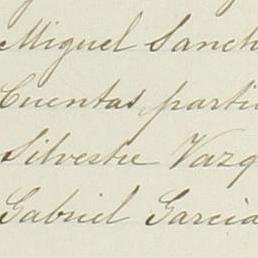 Miguel Sanch
Cuentas parti
Silvestre Vazq
Gabriel Garcia